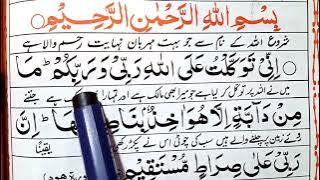 بِسْمِ اللهِ الرَّحْمٰنِ الرَّحِيْمِ
شروع اللہ کے نام سے جو بہت مہربان نہایت رحم والا ہے
اِنِّیْ تَوَكَّلْتُ عَلَى اللهِ رَبِّیْ وَرَبِّكُمْ مَا
میں نے اللہ پر توکل کر لیا ہے جو میرا بھی مالک ہے اور تمہارا مالک ہے جتنے
مِنْ دَآبَّةٍ اِلَّا هُوَ اٰخِذٌۢ بِنَاصِیَتِهَا اِنَّ
روئے زمین پر چلنے والے ہیں سب کی چوٹی اس نے پکڑ یقیناً
رَبِّیْ عَلٰى صِرَاطٍ مُّسْتَقِيْمٍ